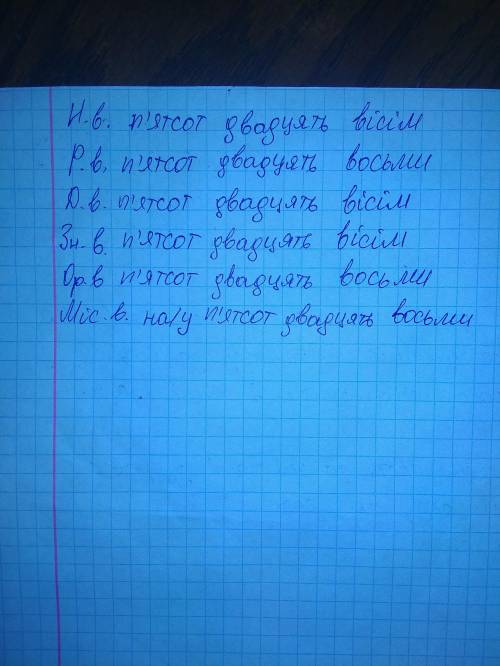 Н.в. п'ятсот двадцять вісім
Р.в. п'ятсот двадцять восьми
Д.в. п'ятсот двадцять вісім
Зн.в. п'ятсот двадцять вісім
Ор.в п'ятсот двадцять восьми
Міс.в. на/у п'ятсот двадцять восьми